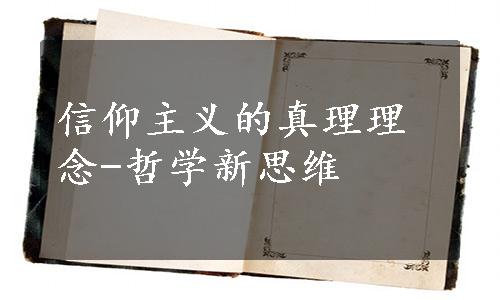 信仰主义的真理理
念-哲学新思维